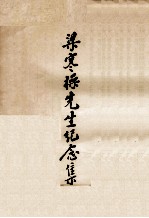 梁寒操先生紀念集